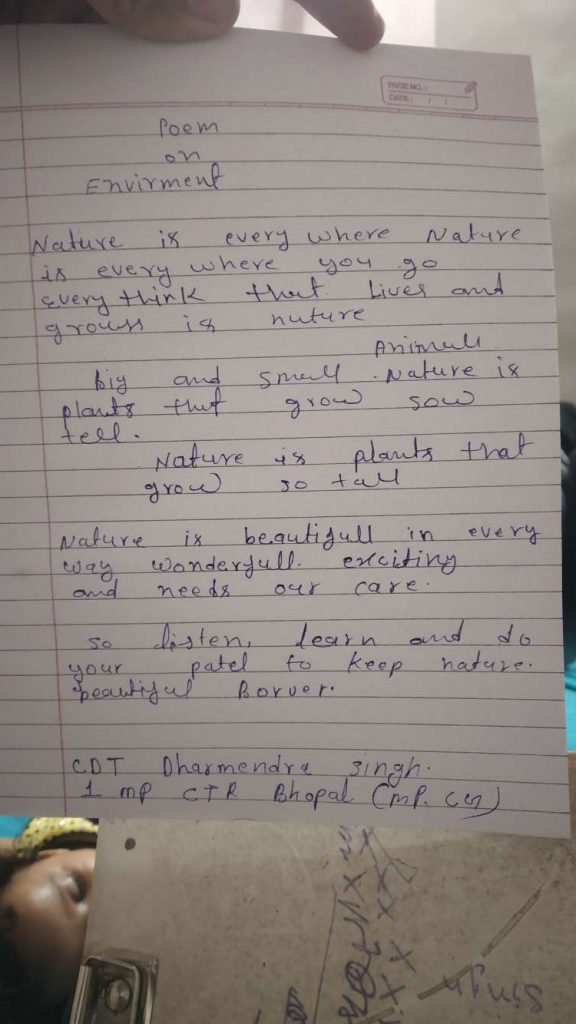 PAGE NO.:
DATE: / /
Poem
on
Envirment
Nature is every where Nature
is every where you go
every think that Lives and
grows is nuture
Animall
big and small. Nature is
plants that grow sow
tell.
Nature is plants that
grow so tall
Nature is beautifull in every
way wonderfull. exciting
and needs our care.
so listen, learn and do
your patel to keep nature.
beautiful Borver.
CDT Dharmendra singh.
1 mp CTR Bhopal (MP. CG)
singh